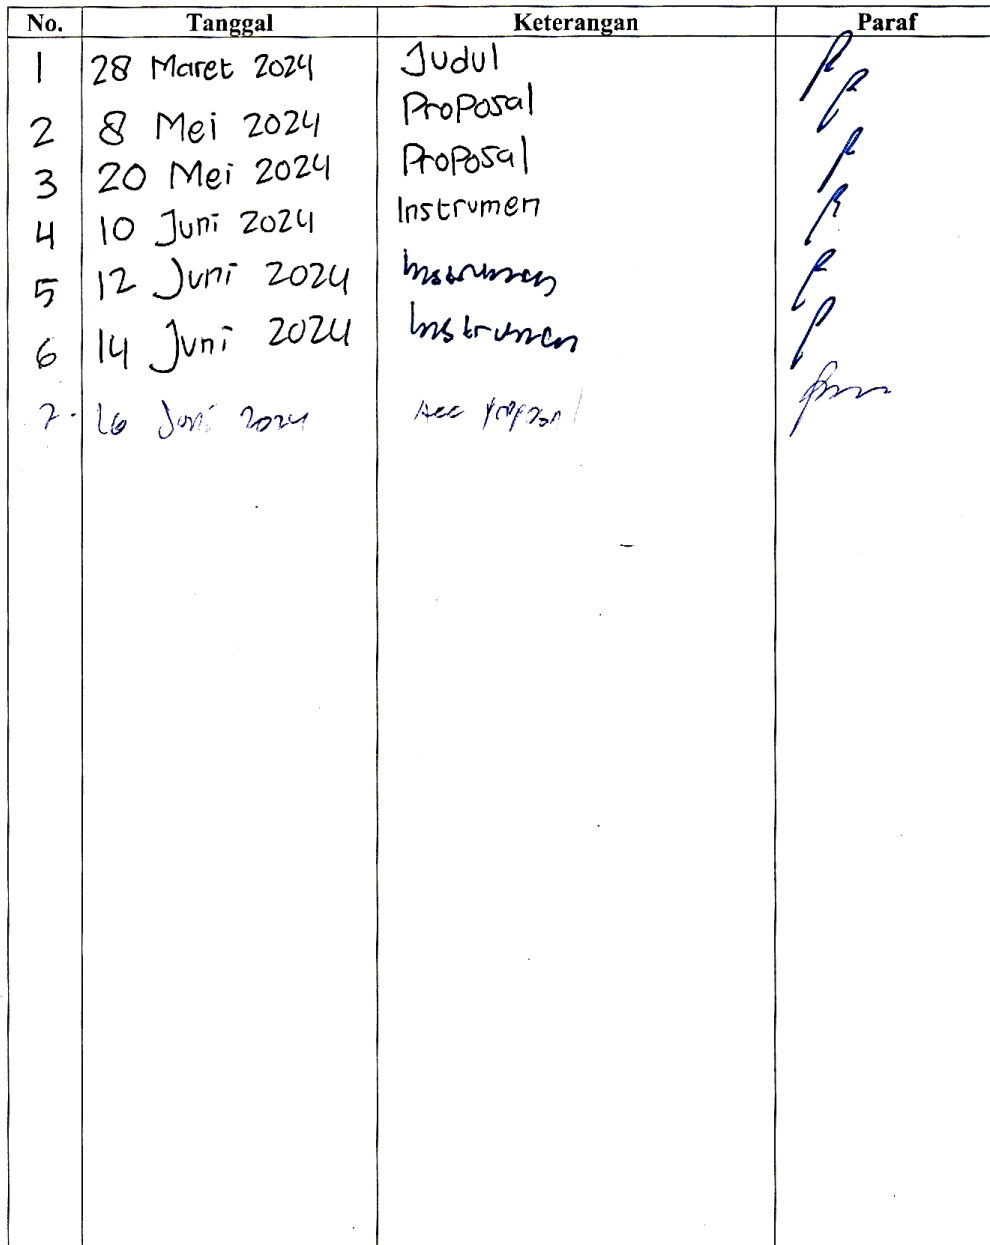 No. Tanggal Keterangan Paraf
1 28 Maret 2024 Judul
2 8 Mei 2024 Proposal
3 20 Mei 2024 Proposal
4 10 Juni 2024 Instrumen
5 12 Juni 2024 Instrumen
6 14 Juni 2024 Instrumen
7. 16 Juni 2024 Acc proposal